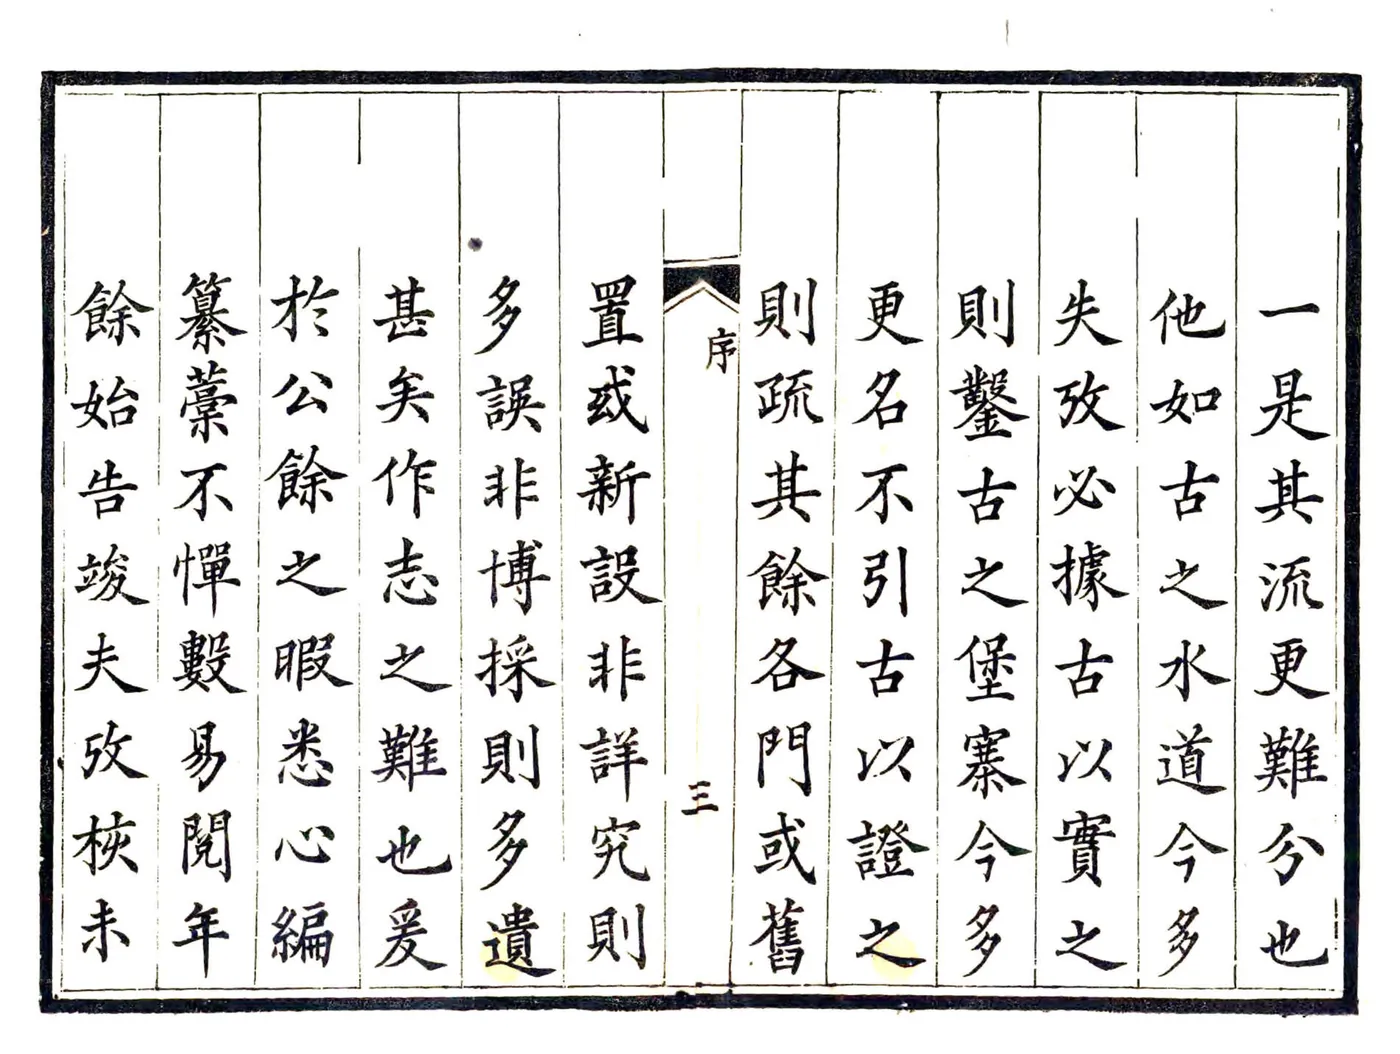 一是其流更難分也
他如古之水道今多
失攷必據古以實之
則鑿古之堡寨今多
更名不引古以證之
則疏其餘各門或舊
序
三
置或新設非詳究則
多誤非博採則多遺
甚矣作志之難也爰
於公餘之暇悉心編
纂藁不憚數易閱年
餘始告竣夫攷核未